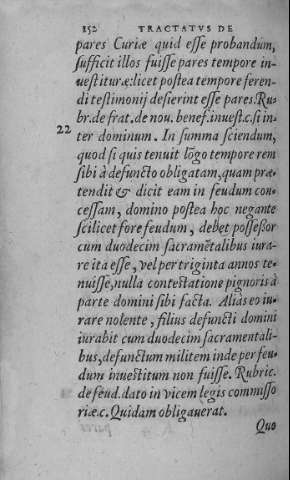 152 TRACTATVS DE
pares Curiæ quid esse probandum,
sufficit illos fuisse pares tempore in-
uestituræ: licet postea tempore feren-
di testimonij desierint esse pares. Ru-
br. de frat. de nou. benef. inuest. c. si in-
22 ter dominum. In summa sciendum,
quod si quis tenuit lōgo tempore rem
sibi à defuncto obligatam, quam præ-
tendit & dicit eam in feudum con-
cessam, domino postea hoc negante
scilicet fore feudum, debet possessor
cum duodecim sacramētalibus iura-
re ita esse, vel per triginta annos te-
nuisse, nulla contestatione pignoris à
parte domini sibi facta. Aliàs eo iu-
rare nolente, filius defuncti domini
iurabit cum duodecim sacramentali-
bus, defunctum militem inde per feu-
dum inuestitum non fuisse. Rubric.
de feud. dato in vicem legis commisso
riæ. c. Quidam obligauerat.
Quo